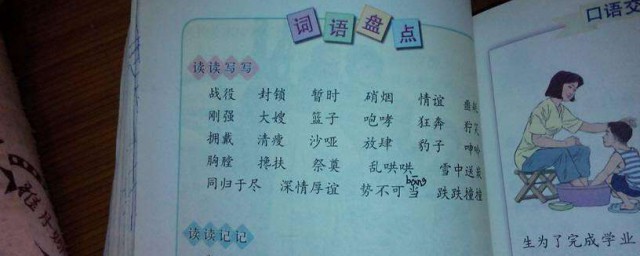 词语盘点
读读写写
战役 封锁 暂时 硝烟 情谊
刚强 大嫂 篮子 咆哮 狂奔 狞
拥戴 清瘦 沙哑 放肆 豹子 呻吟
胸膛 搀扶 祭奠 乱哄哄 雪中送
同归于尽 深情厚谊 势不可当 跌跌撞撞
读读记记
口语交
生为了完成学业